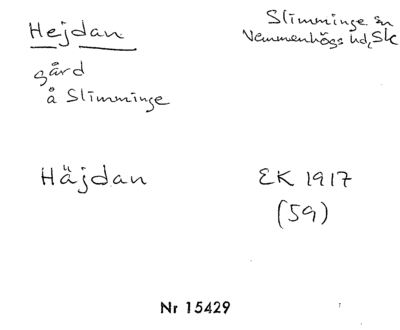 Hejdan
Slimminge sn
Vemmenhögs hd, Sk
gård
å Slimminge
Häjdan
EK 1917
(59)
Nr 15429